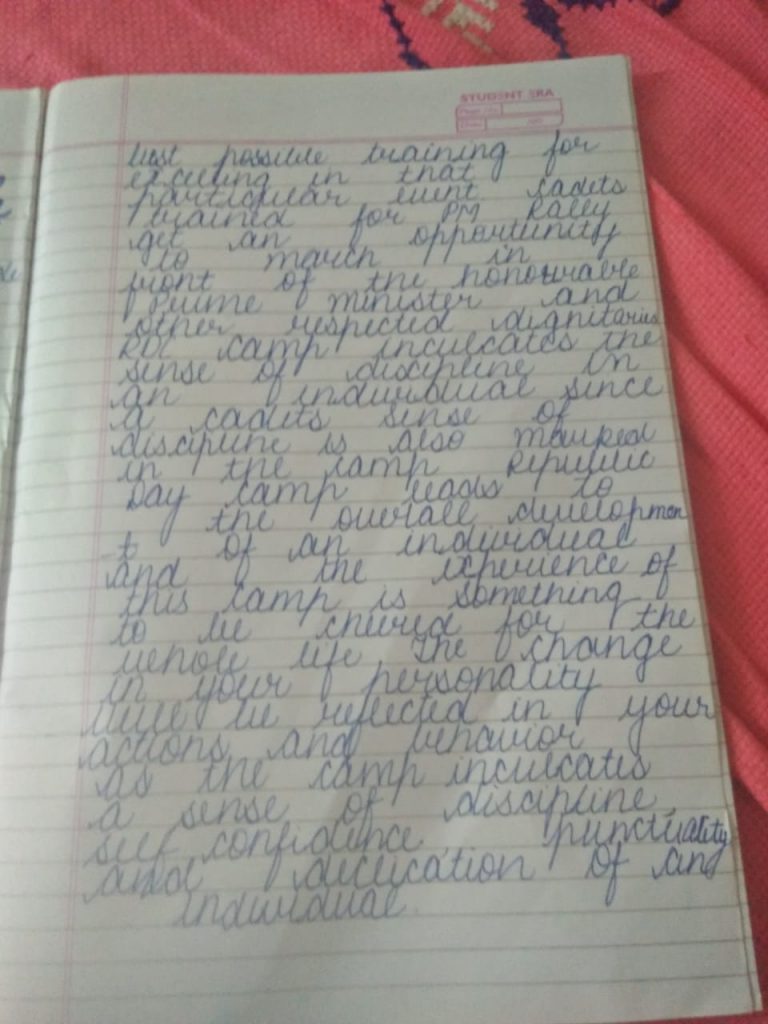 STUDENT ERA
best possible training for
exceling in that
particular event cadets
trained for PM Rally
get an opportunity
to march in
front of the honourable
Prime minister and
other respected dignitaries
RDC camp inculcates the
sense of discipline in
an individual since
a cadets sense of
discipline is also marked
in the camp Republic
Day camp leads to
the overall developmen
t of an individual
and the experience of
this camp is something
to be for the
whole life The change
in your personality
will be reflected in your
actions and behavior
as the camp inculcates
a sense of discipline,
self confidence, punctuality
and dedication of an
individual.